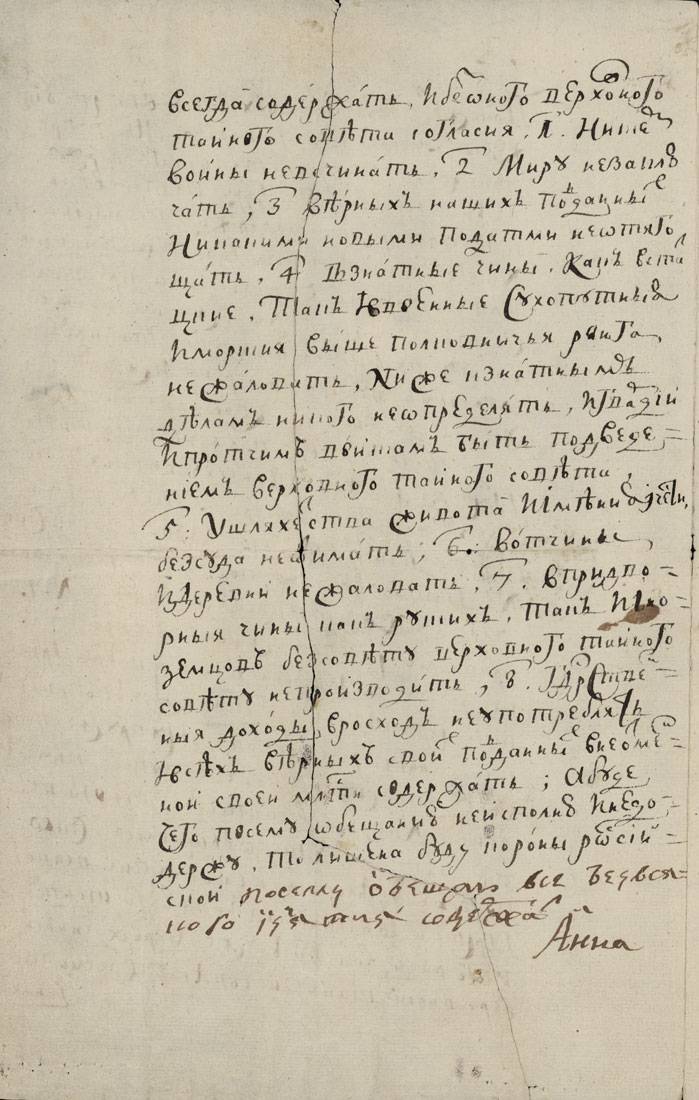 всегда содержать, и без оного верховного
тайного совѣта согласия, 1. Ни с кем
войны не всчинать, 2 Миру не заклю
чать, 3 вѣрных наших подданные
Никакими новыми податми не отяго
щать, 4 В знатные чины, как в ста
цкие, так и в военные сухопутныя
и морския выше полковничья ранга
не жаловать, ниже к знатным
дѣлам никого не определять, и гвардии
и протчим войскам быть под веде=
нием верховного тайного совѣта,
5. У шляхетства живота и имѣния и чести,
без суда не отимать, 6. вотчины,
и деревни не жаловать, 7. в придво=
рныя чины как руских, так и ино=
земцов без совѣту верховного тайного
совѣту не производить, 8. гдрствен=
ныя доходы, в росход не употреблять
и всѣхъ вѣрныхъ своих подданных в неотмѣ=
нои своеи млсти содержать; А буде
чего по сему обещанию не исполню и не до=
держу, то лишена буду короны росиі=
ской по сему обещаюс все безо вся=
кого изятия содержать
Анна